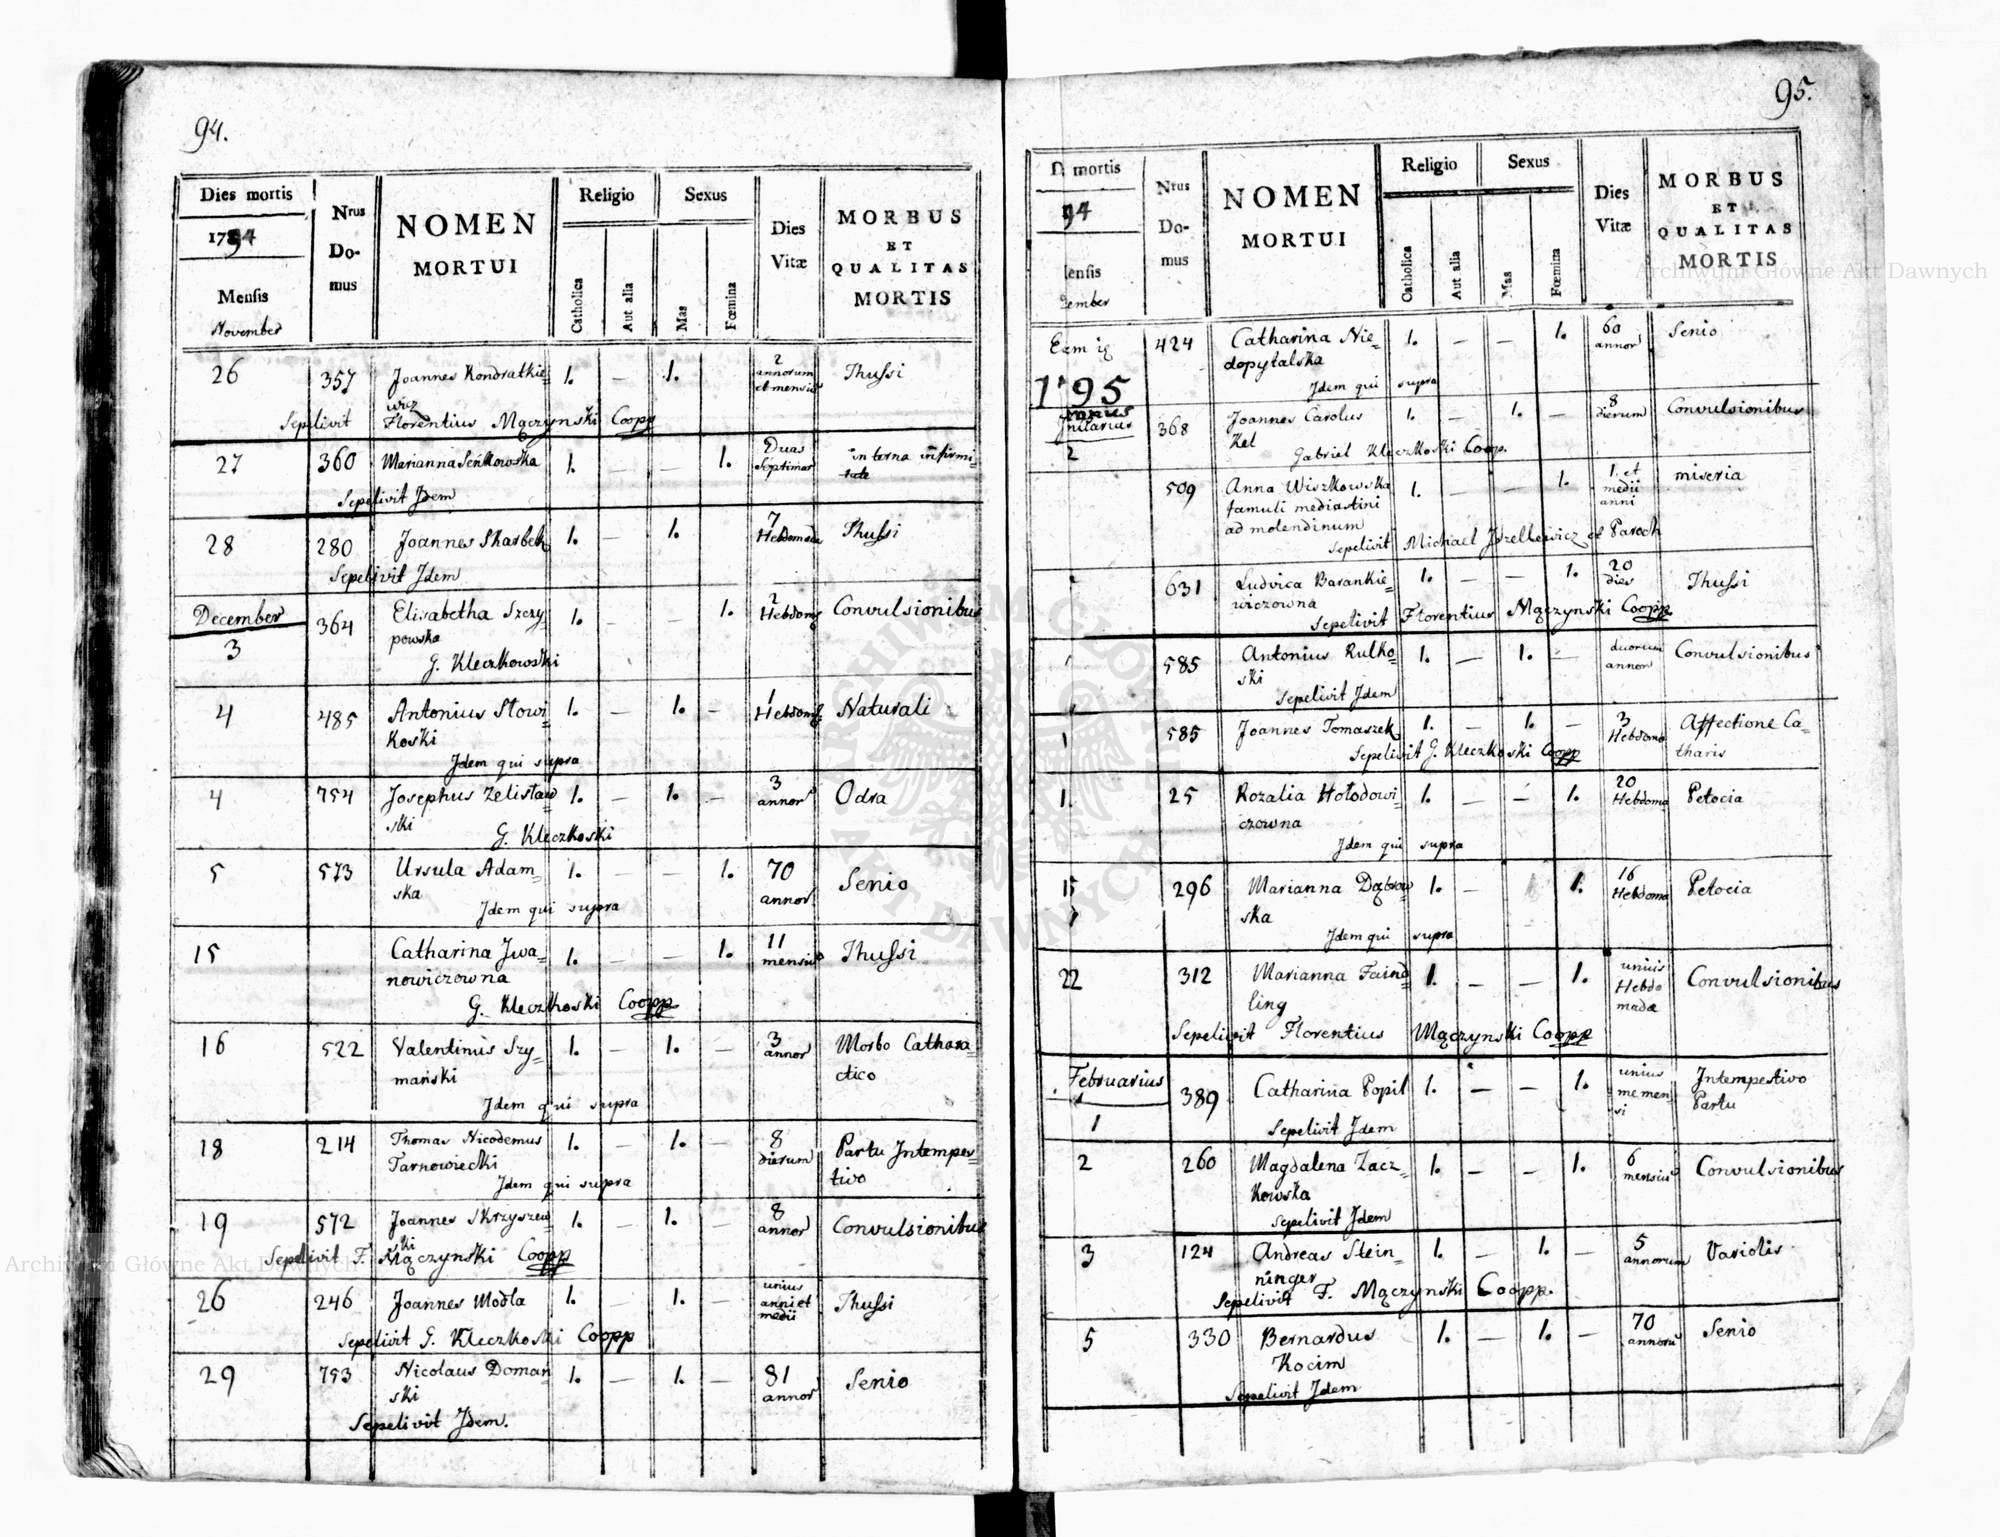 94.
Dies mortis
1794
Mensis
November
Nrus
Do-
mus
NOMEN
MORTUI
Religio
Catholica
Aut alia
Sexus
Mas
Fœmina
Dies
Vitæ
MORBUS
ET
QUALITAS
MORTIS
26 357 Joannes Kondratkie= 1. — 1. 2 annorum et mensis Thussi
wicz
Sepelivit Florentius Mączynski Coopp
27 360 Marianna Senkowska 1. — — 1. Duas Septimas interna infirmi=
tate
Sepelivit Idem
28 280 Joannes Skarbek 1. — 1. 7 Hebdomada Thussi
Sepelivit Idem
December
3 364 Elisabetha Szczy= 1. — — 1. 2 Hebdom Convulsionibus
powska
G. Kleczkowski
4 485 Antonius Słowi= 1. — 1. — 1 Hebdom Naturali
koski
Idem qui supra
4 754 Josephus Zelisław= 1. — 1. — 3 annor Odra
ski
G. Kleczkoski
5 573 Ursula Adam= 1. — — 1. 70 annor Senio
ska
Idem qui supra
15 Catharina Jwa= 1. — — 1. 11 mensium Thussi
nowiczowna
G. Kleczkoski Coopp
16 522 Valentinus Szy= 1. — 1. — 3 annor Morbo Cathara=
mański ctico
Idem qui supra
18 214 Thomas Nicodemus 1. — 1. — 8 dierum Partu Jntempes=
Tarnowiecki tivo
Idem qui supra
19 572 Joannes Skrzyszew 1. — 1. — 8 annor Convulsionibus
ski
Sepelivit F. Mączynski Coopp
26 246 Joannes Modla 1. — 1. — unius anni et medii Thussi
Sepelivit G. Kleczkoski Coopp
29 753 Nicolaus Doman 1. — 1. — 81 annor Senio
ski
Sepelivit Idem.
95.
D. mortis
94
ensis
ember
Nrus
Do-
mus
NOMEN
MORTUI
Religio
Catholica
Aut alia
Sexus
Mas
Fœmina
Dies
Vitæ
MORBUS
ET
QUALITAS
MORTIS
424 Catharina Nie= 1. — — 1. 60 annor Senio
dopytalska
Idem qui supra
1795
2 368 Joannes Carolus 1. — 1. — 8 dierum Convulsionibus
Kel
Gabriel Kleczkoski Coop.
509 Anna Wiszkowska 1. — — 1. 1. et medii anni miseria
famuli mediastini
ad molendinum
Sepelivit Michael Paroch
631 Ludvica Barankie= 1. — — 1. 20 dies Thussi
wiczowna
Sepelivit Florentius Mączynski Coopp
585 Antonius Rulko= 1. — 1. — duorum annor Convulsionibus
ski
Sepelivit Idem
1 585 Joannes Tomaszek 1. — 1. — 3 Hebdoma Affectione Ca=
tharis
Sepelivit G. Kleczkoski Coopp
1. 25 Rozalia Hołodowi= 1. — — 1. 20 Hebdoma Petocia
czowna
Idem qui supra
15 296 Marianna Dąbrow 1. — 1. 16 Hebdoma Petocia
ska
Idem qui supra
22 312 Marianna Faind= 1. — — 1. unius Hebdo madæ Convulsionibus
ling
Sepelivit Florentius Mączynski Coopp
Februarius
1 389 Catharina Popil 1. — — 1. unius me mensi Jntempestivo
Partu
Sepelivit Idem
2 260 Magdalena Zacz= 1. — — 1. 6 mensium Convulsionibus
kowska
Sepelivit Idem
3 124 Andreas Stein= 1. — 1. — 5 annorum Variolis
ninger
Sepelivit F. Mączynski Coopp.
5 330 Bernardus 1. — 1. — 70 annoru Senio
Kocim
Sepelivit Idem
Archiwum Główne Akt Dawnych
Archiwum Główne Akt Dawnych
ARCHIWUM GŁÓWNE AKT DAWNYCH